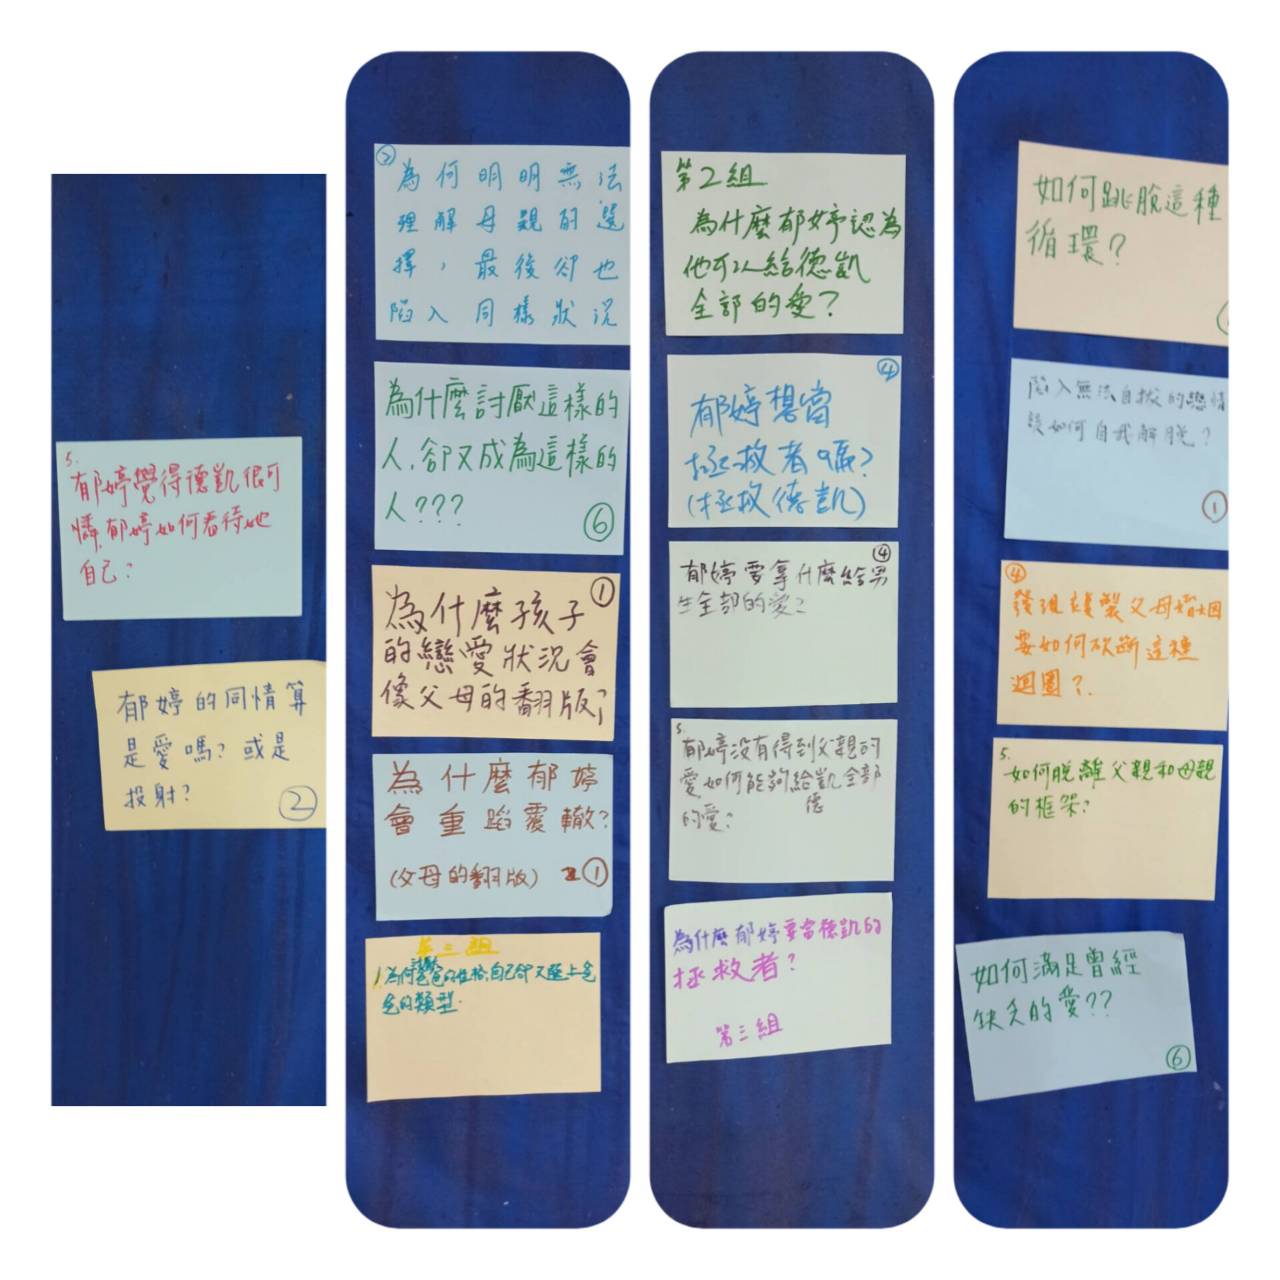 5.
郁婷覺得德凱很可
憐,郁婷如何看待她
自己?
郁婷的同情算
是愛嗎?或是
投射?
②
②
為何明明無法
理解母親的選
擇,最後卻也
陷入同樣狀況
為什麼討厭這樣的
人,卻又成為這樣的
人???
⑥
①
為什麼孩子
的戀愛狀況會
像父母的翻版?
為什麼郁婷
會重蹈覆轍?
(父母的翻版)
①
第三組
1.為何爸爸的性格,自己卻又選上爸
爸的類型.
第2組
為什麼郁婷認為
他可以給德凱
全部的愛?
④
郁婷想當
拯救者嗎?
(拯救德凱)
④
郁婷要拿什麼給男
生全部的愛?
5.
郁婷沒有得到父親的
愛,如何能夠給德凱全部
的愛?
為什麼郁婷要當德凱的
拯救者?
第三組
如何跳脫這種
循環?
陷入無法自拔的戀情
後如何自我解脫?
①
④
發現複製父母婚姻
要如何砍斷這種
迴圈?
5.
如何脫離父親和母親
的框架?
如何滿足曾經
缺乏的愛??
⑥